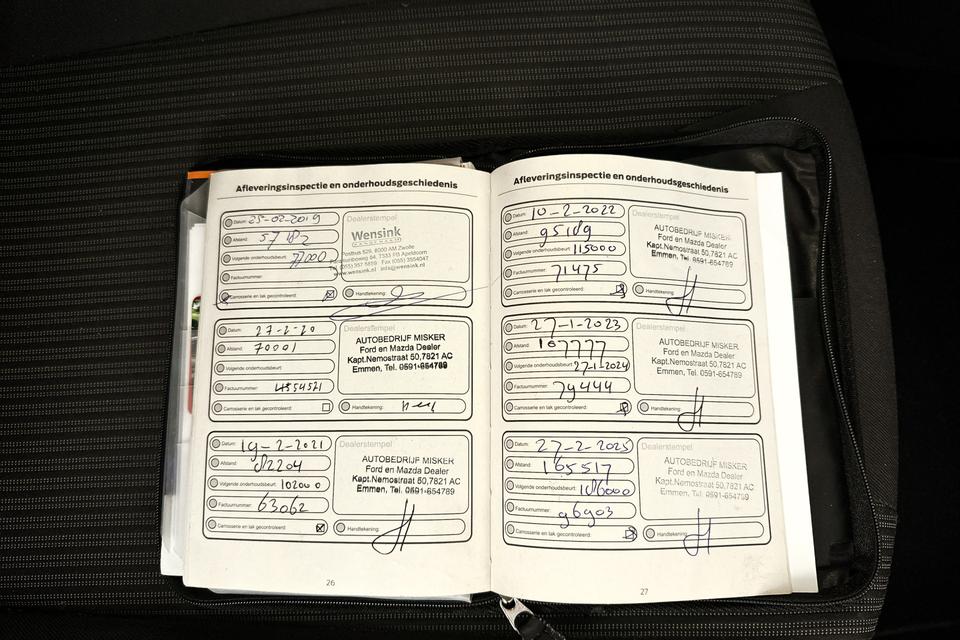 Afleveringsinspectie en onderhoudsgeschiedenis
Datum: 25-02-2019
Afstand:
Volgende onderhoudsbeurt: 77000
Factuurnummer:
Carrosserie en lak gecontroleerd:
Dealerstempel
Wensink
Postbus 529, 8000 AM Zwolle
7333 PB Apeldoorn
Tel (055) 357 5859 Fax (055) 3554047
www.wensink.nl info@wensink.nl
Handtekening:
Datum: 27-2-20
Afstand: 70001
Volgende onderhoudsbeurt:
Factuurnummer: 4554521
Carrosserie en lak gecontroleerd:
Dealerstempel
AUTOBEDRIJF MISKER
Ford en Mazda Dealer
Kapt.Nemostraat 50,7821 AC
Emmen, Tel. 0591-654789
Handtekening:
Datum: 19-2-2021
Afstand: 82204
Volgende onderhoudsbeurt: 102000
Factuurnummer: 63062
Carrosserie en lak gecontroleerd:
Dealerstempel
AUTOBEDRIJF MISKER
Ford en Mazda Dealer
Kapt.Nemostraat 50,7821 AC
Emmen, Tel. 0591-654789
Handtekening:
26
Afleveringsinspectie en onderhoudsgeschiedenis
Datum: 10-2-2022
Afstand: 95189
Volgende onderhoudsbeurt: 115000
Factuurnummer: 71475
Carrosserie en lak gecontroleerd:
Dealerstempel
AUTOBEDRIJF MISKER
Ford en Mazda Dealer
Kapt.Nemostraat 50,7821 AC
Emmen, Tel. 0591-654789
Handtekening:
Datum: 27-1-2023
Afstand: 107777
Volgende onderhoudsbeurt: 27-1-2024
Factuurnummer: 79444
Carrosserie en lak gecontroleerd:
Dealerstempel
AUTOBEDRIJF MISKER
Ford en Mazda Dealer
Kapt.Nemostraat 50,7821 AC
Emmen, Tel. 0591-654789
Handtekening:
Datum: 27-2-2025
Afstand: 165517
Volgende onderhoudsbeurt: 186000
Factuurnummer: 96903
Carrosserie en lak gecontroleerd:
Dealerstempel
AUTOBEDRIJF MISKER
Ford en Mazda Dealer
Kapt.Nemostraat 50,7821 AC
Emmen, Tel. 0591-654789
Handtekening:
27